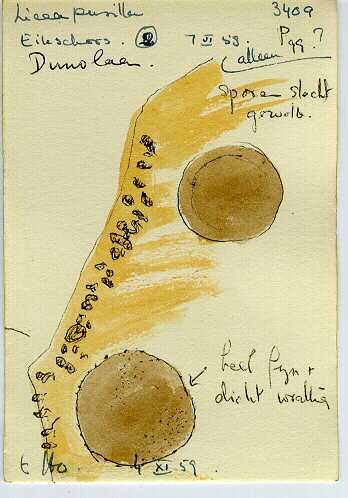 Licea pusilla 3409
Eikschors. 2 7 VI 59. Pgg?
Dunolaan. alleen
Sporen slecht
gewolb.
heel fijn +
dicht wrattig
4 XI 59.